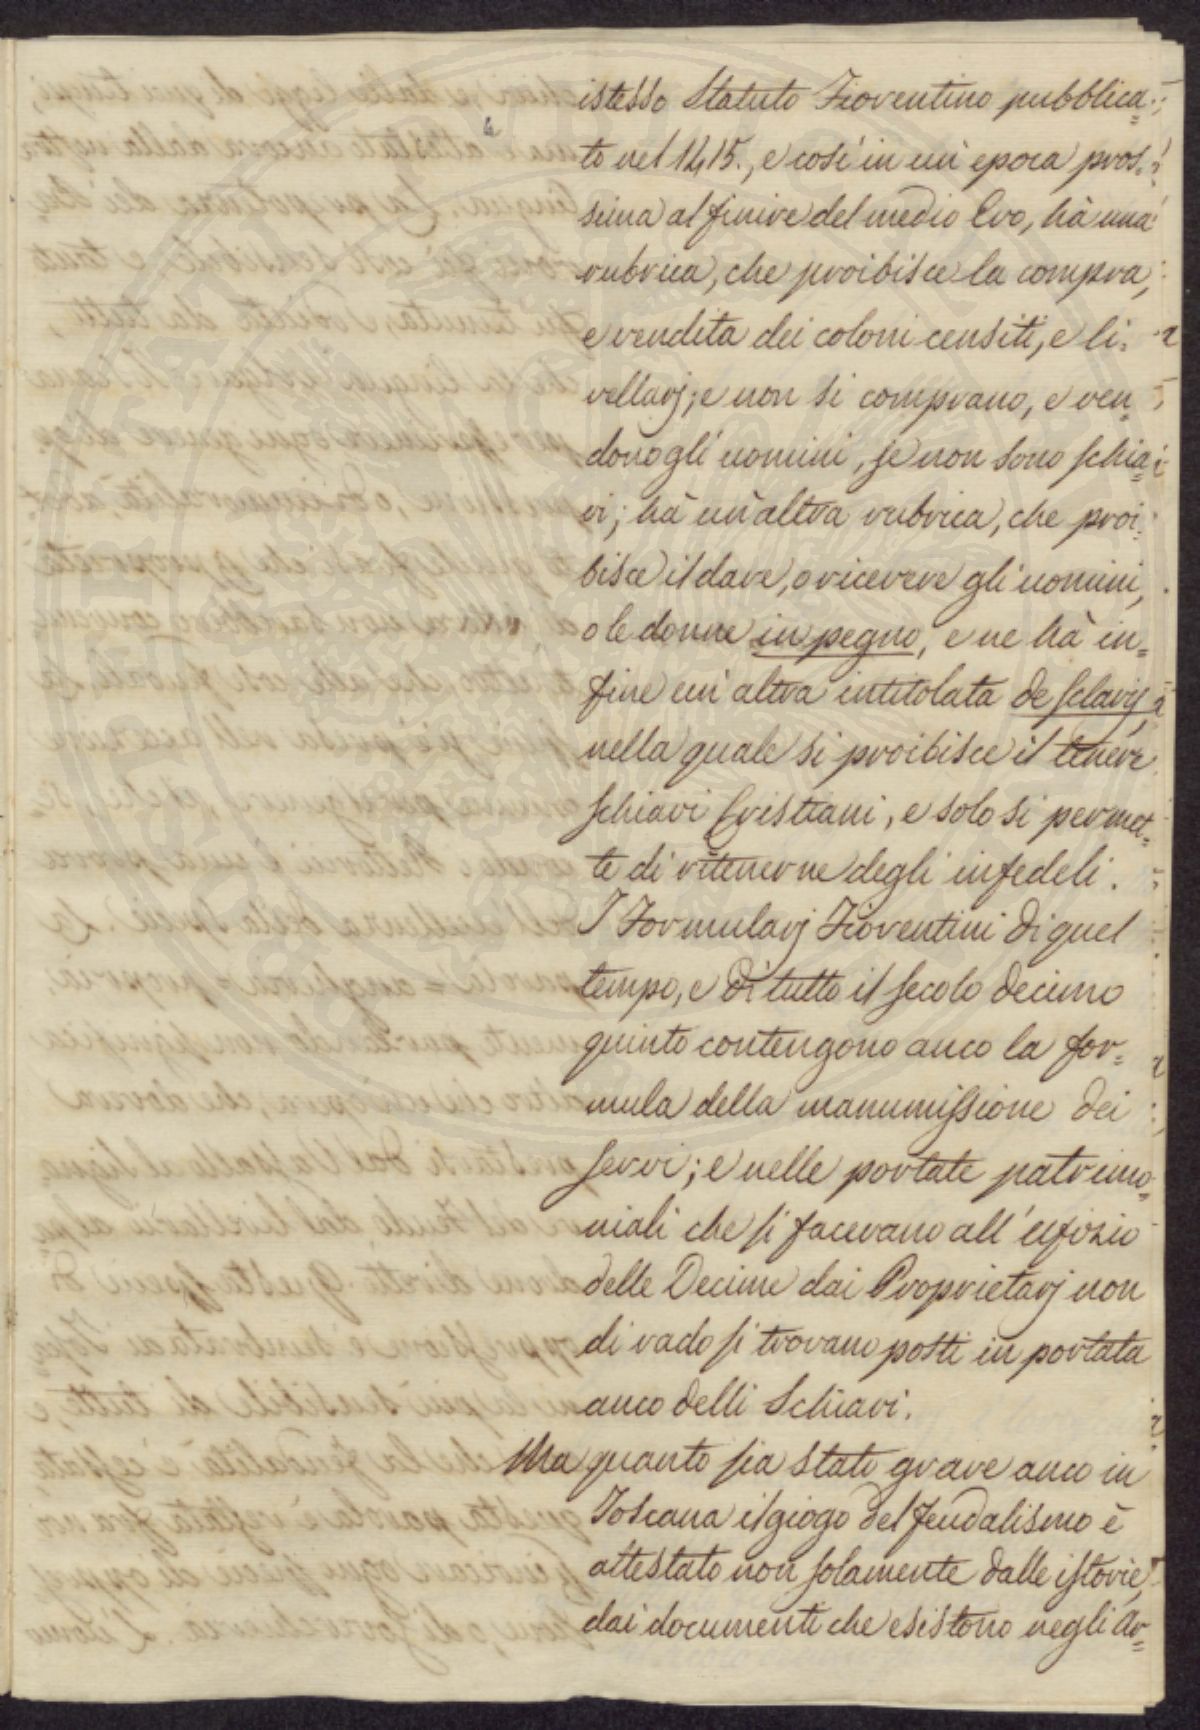 istesso Statuto Fiorentino pubblica=
to nel 1415., e così in un' epoca pros=
sima al finire del medio Evo, hà una
rubrica, che proibisce la compra,
e vendita dei coloni censiti, e li=
vellarj; e non si comprano, e ven=
dono gli uomini, se non sono schia=
vi; hà un' altra rubrica, che proi=
bisce il dare, o ricevere gli uomini,
o le donne in pegno, e ne hà in=
fine un' altra intitolata de sclavis,
nella quale si proibisce il tenere
schiavi Cristiani, e solo si permet=
te di ritenerne degli infedeli.
I Formularj Fiorentini di quel
tempo, e di tutto il secolo decimo
quinto contengono anco la for=
mula della manumissione dei
servi; e nelle portate patrimo=
niali che si facevano all' Ufizio
delle Decime dai Proprietarj non
di rado si trovano posti in portata
anco delli Schiavi.
Ma quanto sia stato grave anco in
Toscana il giogo del feudalismo è
attestato non solamente dalle istorie,
dai documenti che esistono negli Ar=